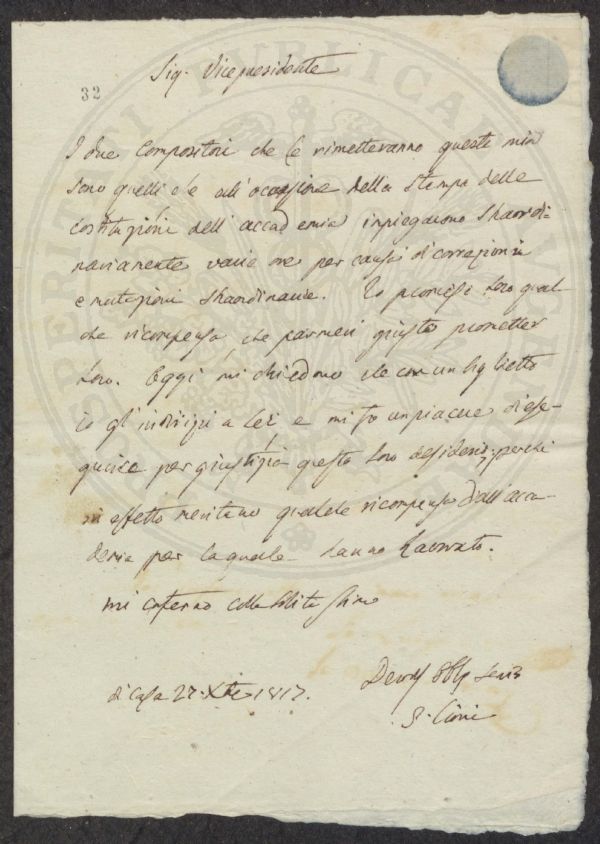 32
Sig. Vicepresidente
I due Compositori che Le rimetteranno questa mia
sono quelli che all'occasione della stampa delle
costituzioni dell'accademia inpiegarono straordi-
nariamente varie ore per causa di correzioni
e mutazioni straordinarie. Io promisi loro qual-
che ricompensa, che parmevi giusto prometter
loro. Oggi mi chiedono che con un biglietto
io gl'indirizzi a Lei e mi fo un piacere di ese-
guire per giustizia questo loro desiderio; perchè
in effetto meritano qualche ricompensa dall'acca-
demia per la quale hanno lavorato.
mi confermo colla solita stima
di Casa 27 Xbre 1817.
Devmo Obbl Serv
Cioni
POSTERITATI PUBLICAE